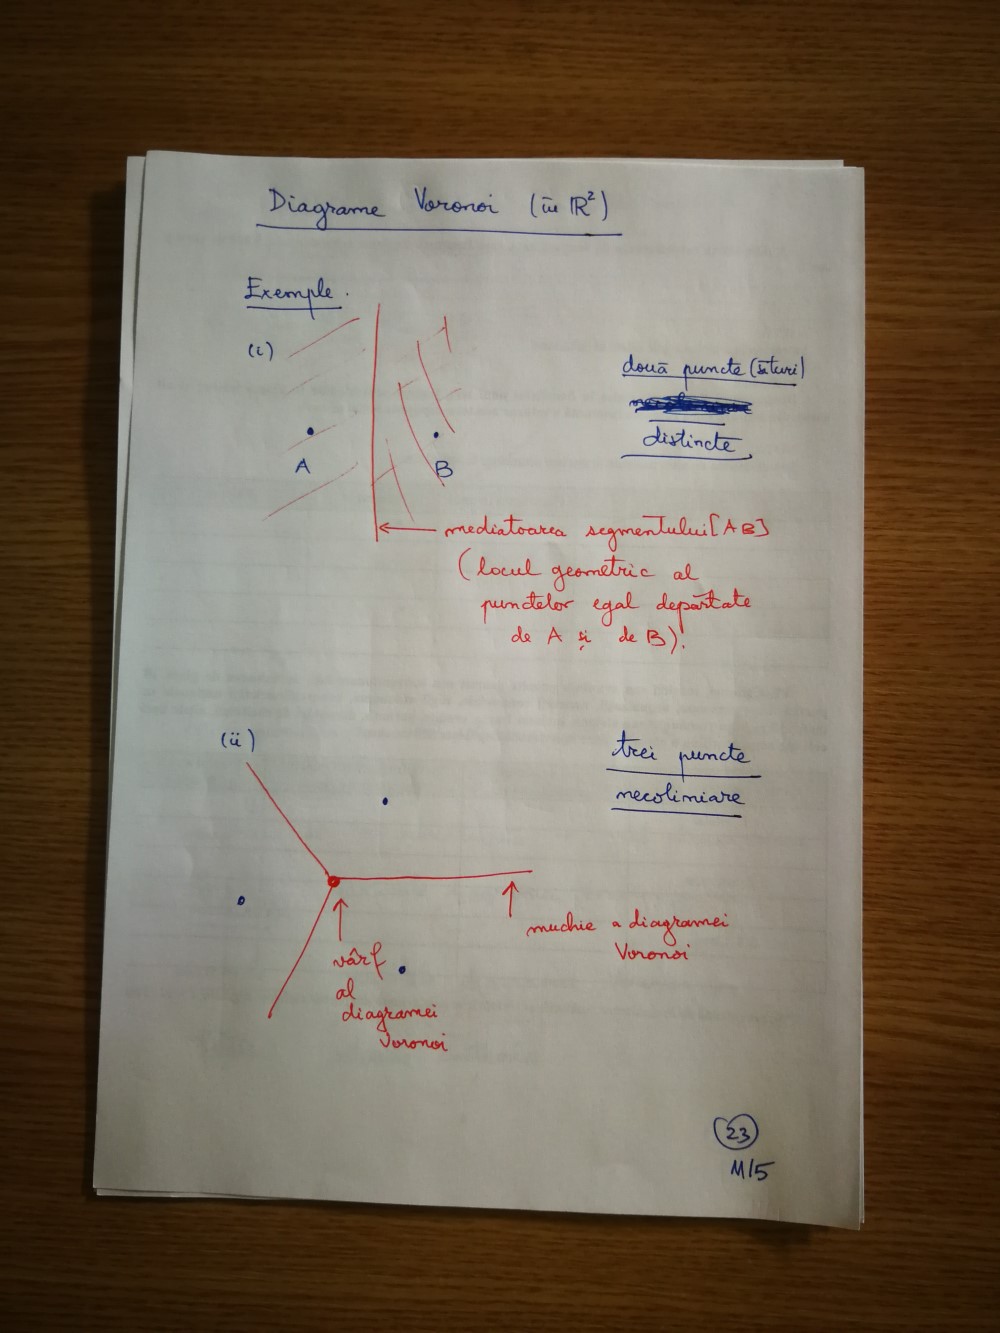 Diagrame Voronoi (în ℝ²)
Exemple.
(i)
două puncte (situri)
distincte
A
B
mediatoarea segmentului [AB]
(locul geometric al
punctelor egal depărtate
de A și de B).
(ii)
trei puncte
necoliniare
muchie a diagramei
Voronoi
vârf
al
diagramei
Voronoi
23
M15